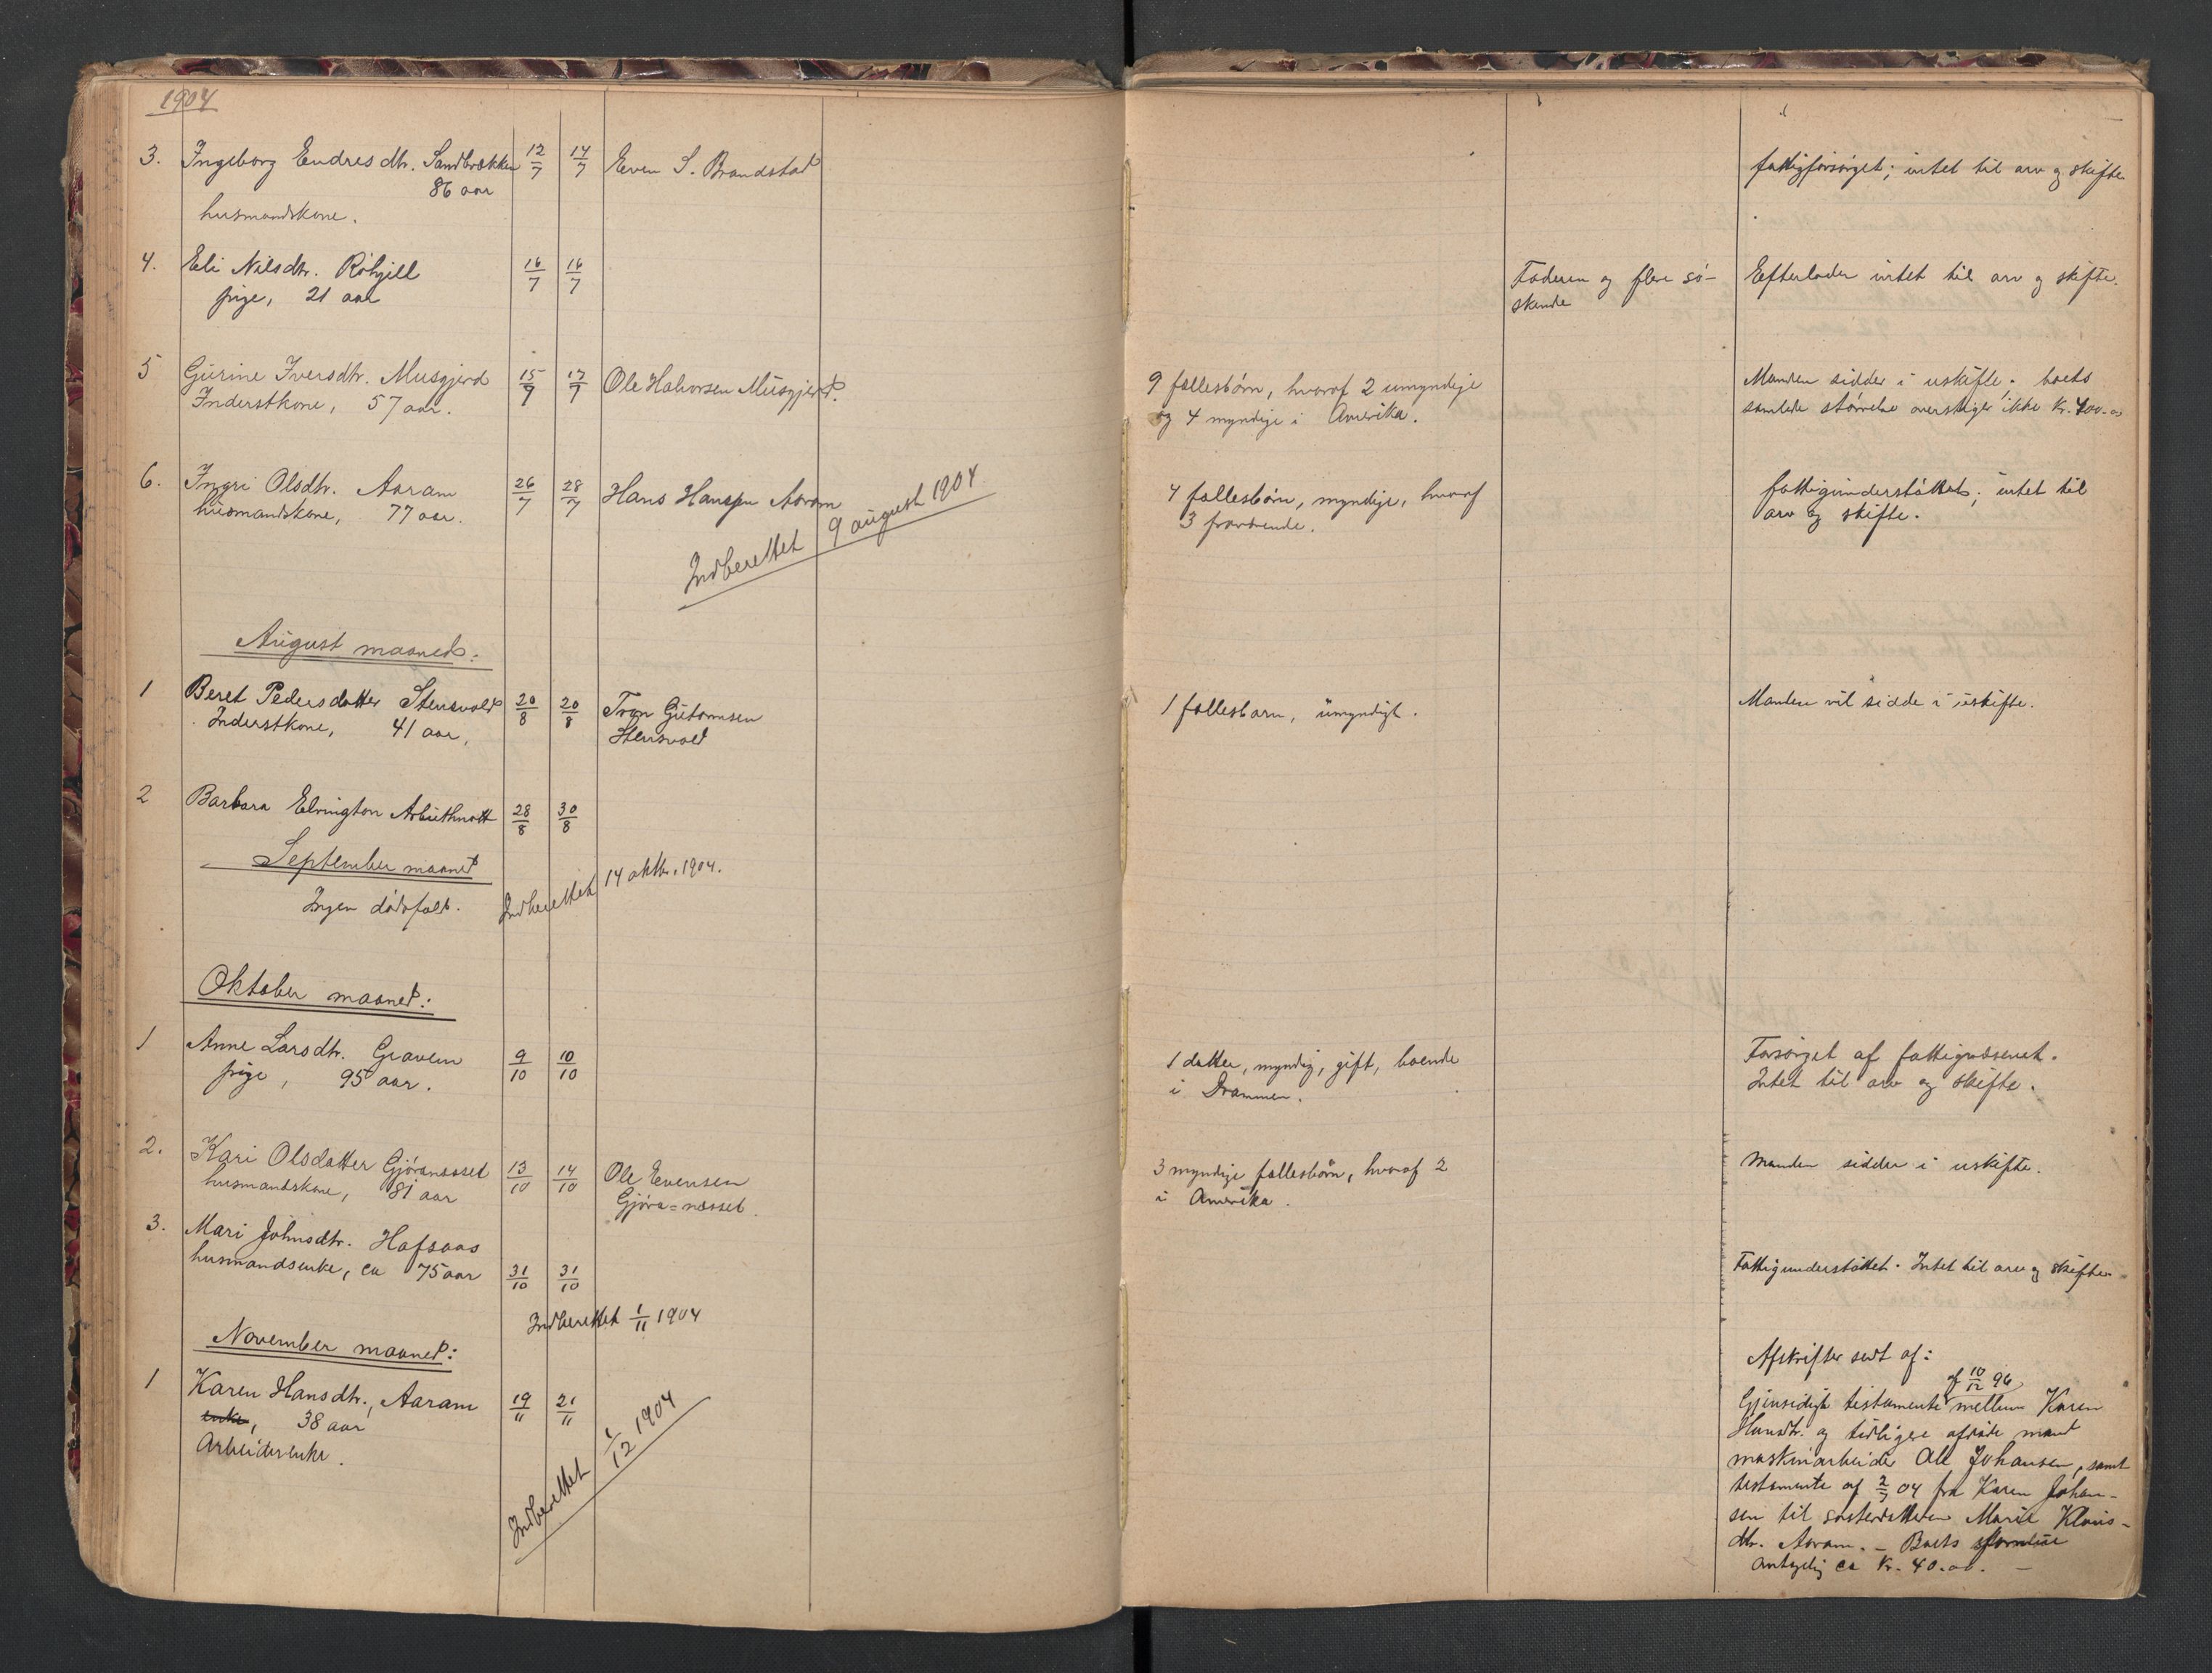 1904
3. Ingeborg Endresdtr. Sandbrækken 12/7 14/7 Even S. Brandstad fattigforsørget; intet til arv og skifte
86 aar
husmandskone.
4. Eli Nilsdtr. 16/7 16/7 Faderen og flere sø- Efterlader intet til arv og skifte.
pige, 21 aar skende
5 Gurine Iversdtr. Musgjerd 15/7 17/7 Ole Halvorsen Musgjerd. 9 fællesbørn, hvoraf 2 umyndige Manden sidder i uskifte; boets
Inderstkone, 57 aar. og 4 myndige i Amerika. samlede størrelse overstiger ikke kr. 400.00
6. Ingri Olsdtr. Aaram 26/7 28/7 Hans Hansen Aaram 4 fællesbørn, myndige, hvoraf fattigunderstøttet; intet til
husmandskone, 77 aar. 3 fraværende. arv og skifte.
Indberettet 9 august 1904
August maaned:
1 Beret Pedersdatter Stensvold 20/8 20/8 Tron Guttormsen 1 fællesbarn, umyndigt. Manden vil sidde i uskifte.
Inderstkone, 41 aar, Stensvold
2 Barbara Elrington Arbuthnott 28/8 30/8
September maaned
Ingen dødsfald. Indberettet 14 oktbr. 1904.
Oktober maaned:
1 Anne Larsdtr. Gravem 9/10 10/10 1 datter, myndig, gift, boende Forsørget af fattigvæsenet.
pige, 95 aar. i Drammen. Intet til arv og skifte.
2. Kari Olsdatter Gjøranæsset 13/10 14/10 Ole Evensen 3 myndige fællesbørn, hvoraf 2 Manden sidder i uskifte.
husmandskone, 81 aar Gjøra=næsset. i Amerika.
3. Mari Johnsdtr. Hafsaas
husmandsenke, ca 75 aar 31/10 31/10 Fattigunderstøttet. Intet til arv og skifte.
Indberettet 1/11 1904
November maaned:
1 Karen Hansdtr., Aaram 19/11 21/11 Afskrifter sendt af:
enke, 38 aar
Arbeiderenke.
Indberettet 1/12 1904
af 10/12 96
Gjensidigt testamente mellem Karen
Hansdtr. og tidligere afdøde mand
maskinarbeider Ole Johansen, samt
testamente af 2/7 04 fra Karen Johan-
sen til søsterdatteren Marie Klaus-
dtr. Aaram. – Boets størrelse
antagelig ca kr. 40.00. –